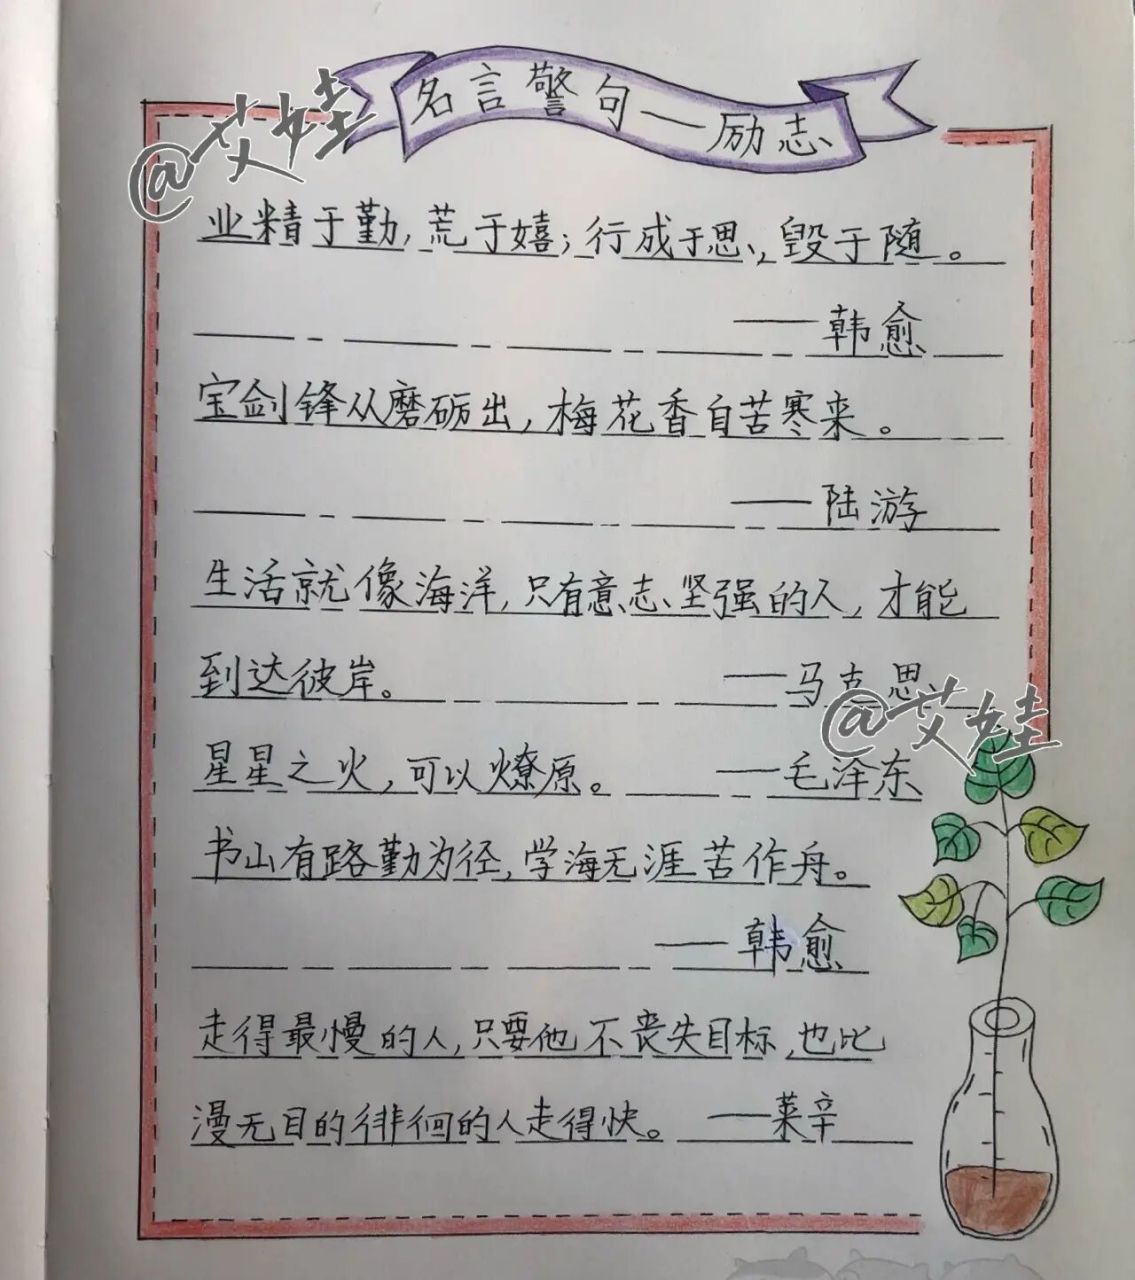 名言警句——励志
@艾娃
业精于勤,荒于嬉;行成于思,毁于随。
——韩愈
宝剑锋从磨砺出,梅花香自苦寒来。
——陆游
生活就像海洋,只有意志坚强的人,才能
到达彼岸。 ——马克思
@艾娃
星星之火,可以燎原。 ——毛泽东
书山有路勤为径,学海无涯苦作舟。
——韩愈
走得最慢的人,只要他不丧失目标,也比
漫无目的徘徊的人走得快。 ——莱辛